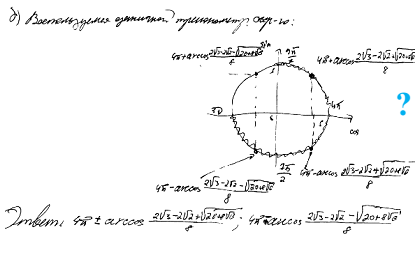 б) Воспользуемся единичной тригонометр. окр-ю:
sin
4π+arccos (2√3-2√2-√(20+8√6))/8
4π+arccos (2√3-2√2+√(20+8√6))/8
4π
?
cos
4π-arccos (2√3-2√2-√(20+8√6))/8
4π-arccos (2√3-2√2+√(20+8√6))/8
Ответ: 4π ± arccos (2√3-2√2+√(20+8√6))/8 ; 4π-arccos (2√3-2√2-√(20+8√6))/8